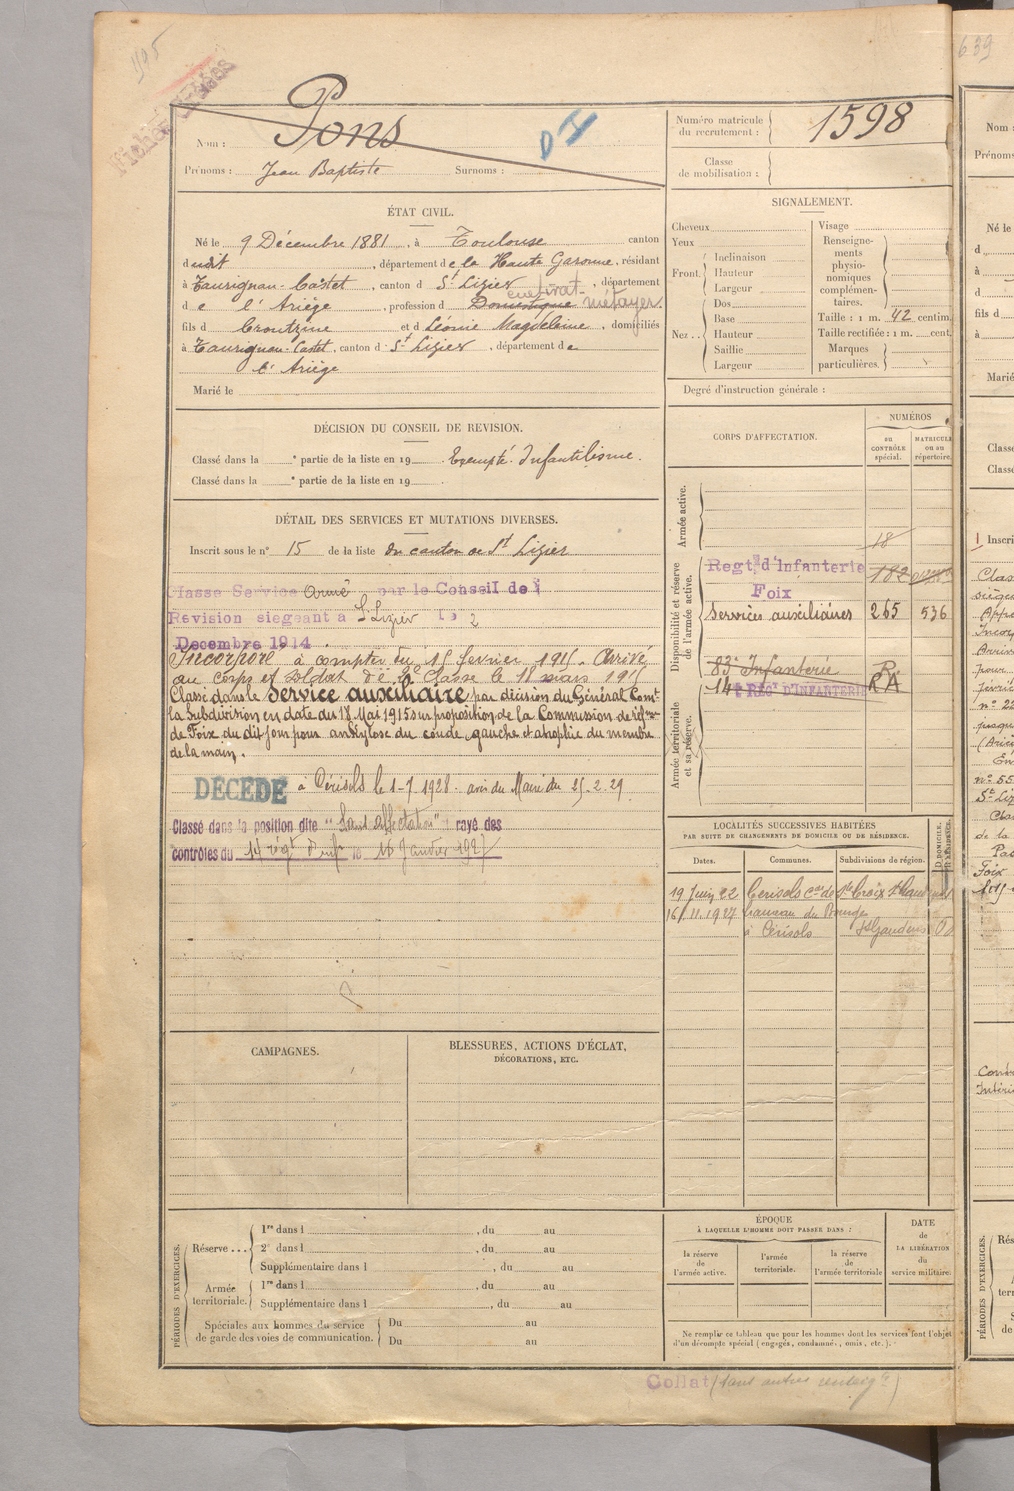 1195
Fiches
Pons
D I
Nom :
Prénoms : Jean Baptiste Surnoms :
Numéro matricule du recrutement : 1598
Classe de mobilisation :
ÉTAT CIVIL.
Né le 9 Décembre 1881, à Toulouse canton
dudit, département de la Haute Garonne, résidant
à Taurignan-Castet, canton d St Lizier, département
cultivat.
d e l'Ariège, profession d Domestique métayer.
fils d et d Léonie Magdeleine, domiciliés
à Taurignan-Castet, canton d St Lizier, département de
l'Ariège
Marié le
DÉCISION DU CONSEIL DE REVISION.
Classé dans la e partie de la liste en 19 Exempté. Infantilisme.
Classé dans la e partie de la liste en 19 .
DÉTAIL DES SERVICES ET MUTATIONS DIVERSES.
Inscrit sous le n° 15 de la liste du canton de St Lizier
Classé Service Armé par le Conseil de
Revision siegeant a St Lizier le 2
Decembre 1914
Incorporé à compter du 15 février 1915. Arrivé
au corps et soldat de 2e classe le 18 mars 1915
Classé dans le Service auxiliaire par décision du Général Comt
la Subdivision en date du 18 Mai 1915 sur proposition de la Commission de réfme
de Foix du dit jour pour ankylose du coude gauche et atrophie du membre
de la main.
DÉCÉDÉ à Cérisols le 1-7-1928. avis du Maire du 25-2-29
Classé dans la position dite "Sans affectation" rayé des
contrôles du 14 régt d'Infie le 16 Janvier 1927
CAMPAGNES.
BLESSURES, ACTIONS D'ÉCLAT,
DÉCORATIONS, ETC.
PÉRIODES D'EXERCICES.
Réserve ...
1re dans l , du au
2e dans l , du au
Supplémentaire dans l , du au
Armée territoriale.
1re dans l , du au
Supplémentaire dans l , du au
Spéciales aux hommes du service
de garde des voies de communication.
Du au
Du au
SIGNALEMENT.
Cheveux
Yeux
Front. Inclinaison
Hauteur
Largeur
Nez .. Dos
Base
Hauteur
Saillie
Largeur
Visage
Renseignements physionomiques complémentaires.
Taille : 1 m. 42 centim.
Taille rectifiée : 1 m. cent.
Marques particulières.
Degré d'instruction générale :
CORPS D'AFFECTATION.
NUMÉROS
AU CONTRÔLE spécial.
MATRICULE ou au répertoire.
Armée active.
18
Disponibilité et réserve de l'armée active.
Regt d'Infanterie 182
Foix
Services auxiliaires 265 536
Armée territoriale et sa réserve.
83e Infanterie R.
14e RÉGt D'INFANTERIE RA
LOCALITÉS SUCCESSIVES HABITÉES
PAR SUITE DE CHANGEMENTS DE DOMICILE OU DE RÉSIDENCE.
Dates. Communes. Subdivisions de région. D DOMICILE.
19 Juin 22 Cerisols con de Ste Croix St Gaud
16.11.1927 hameau de
à Cérisols St Gaudens
ÉPOQUE
À LAQUELLE L'HOMME DOIT PASSER DANS :
la réserve de l'armée active.
l'armée territoriale.
la réserve de l'armée territoriale
DATE de LA LIBÉRATION du service militaire.
Ne remplir ce tableau que pour les hommes dont les services font l'objet
d'un décompte spécial (engagés, condamnés, omis, etc.).
Collat (sans autres renseigts)
639